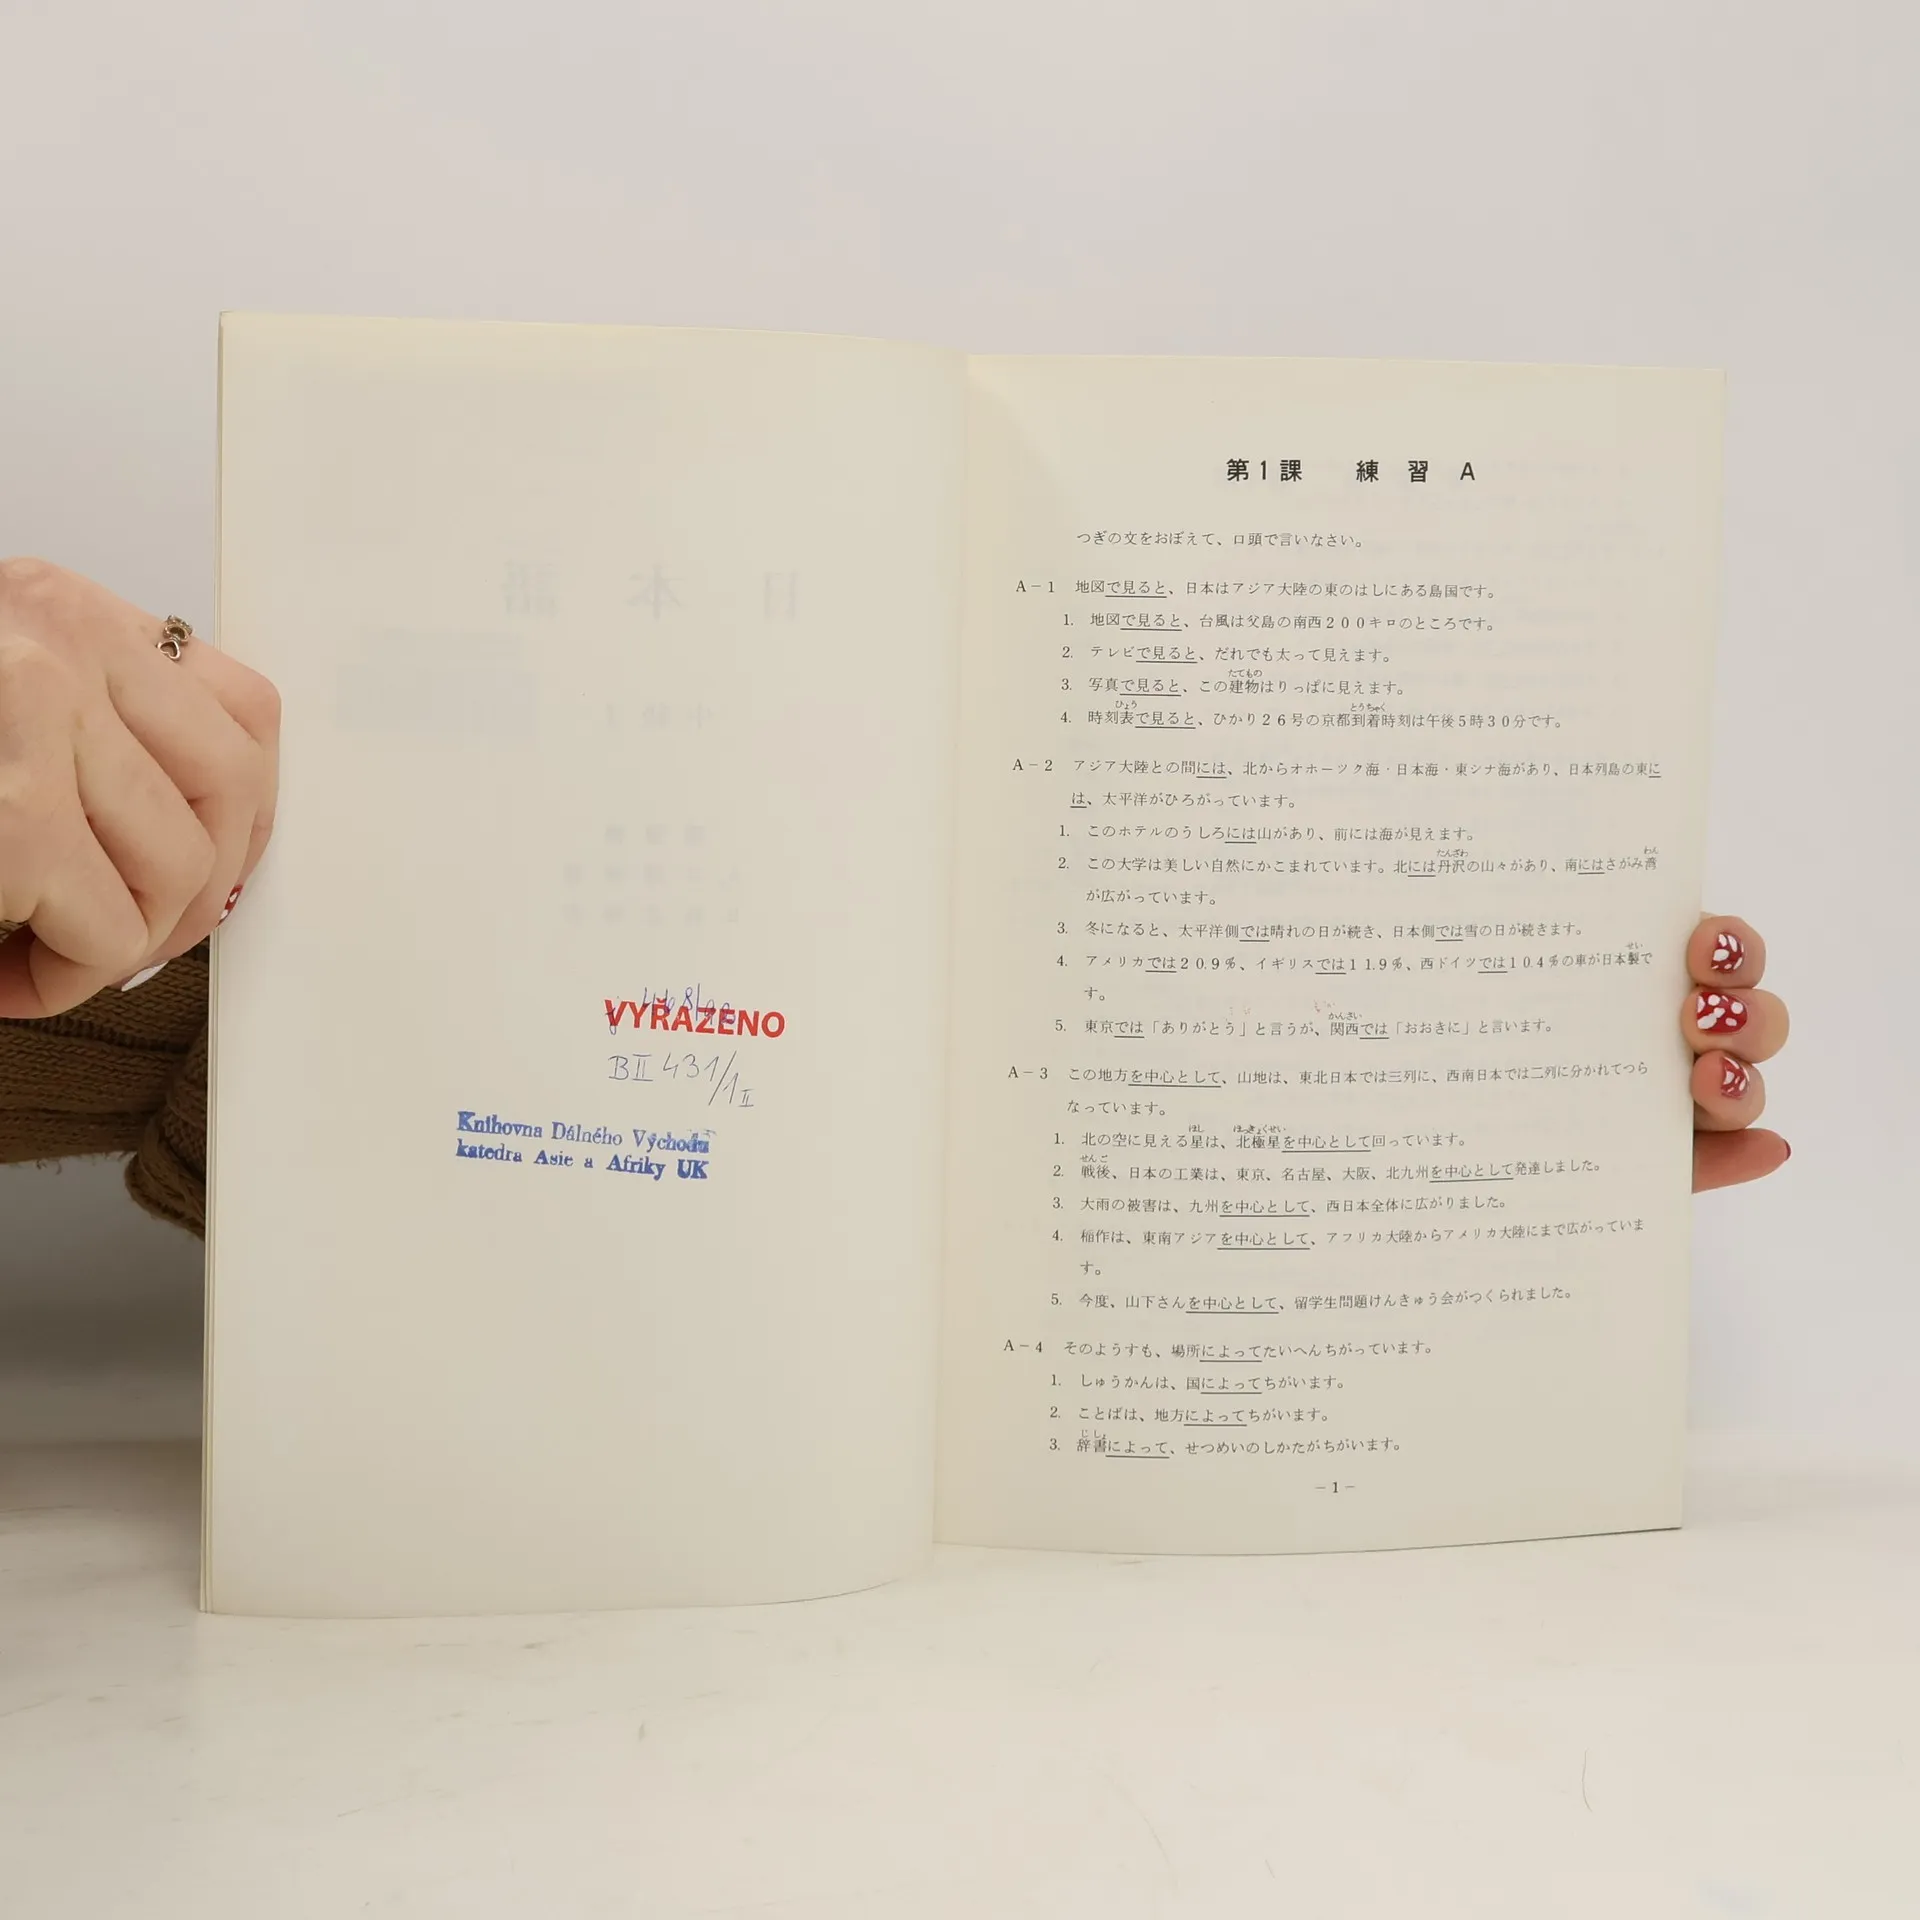 VYŘAZENO
BII 431/1II
Knihovna Dálného Východu
katedra Asie a Afriky UK
第1課 練習 A
つぎの文をおぼえて、口頭で言いなさい。
A－1 地図で見ると、日本はアジア大陸の東のはしにある島国です。
1. 地図で見ると、台風は父島の南西200キロのところです。
2. テレビで見ると、だれでも太って見えます。
たてもの
3. 写真で見ると、この建物はりっぱに見えます。
ひょう とうちゃく
4. 時刻表で見ると、ひかり26号の京都到着時刻は午後5時30分です。
A－2 アジア大陸との間には、北からオホーツク海・日本海・東シナ海があり、日本列島の東に
は、太平洋がひろがっています。
1. このホテルのうしろには山があり、前には海が見えます。
たんざわ わん
2. この大学は美しい自然にかこまれています。北には丹沢の山々があり、南にはさがみ湾
が広がっています。
3. 冬になると、太平洋側では晴れの日が続き、日本側では雪の日が続きます。
せい
4. アメリカでは20.9%、イギリスでは11.9%、西ドイツでは10.4%の車が日本製で
す。
かんさい
5. 東京では「ありがとう」と言うが、関西では「おおきに」と言います。
A－3 この地方を中心として、山地は、東北日本では三列に、西南日本では二列に分かれてつら
なっています。
ほし ほっきょくせい
1. 北の空に見える星は、北極星を中心として回っています。
せんご
2. 戦後、日本の工業は、東京、名古屋、大阪、北九州を中心として発達しました。
3. 大雨の被害は、九州を中心として、西日本全体に広がりました。
4. 稲作は、東南アジアを中心として、アフリカ大陸からアメリカ大陸にまで広がっていま
す。
5. 今度、山下さんを中心として、留学生問題けんきゅう会がつくられました。
A－4 そのようすも、場所によってたいへんちがっています。
1. しゅうかんは、国によってちがいます。
2. ことばは、地方によってちがいます。
じしょ
3. 辞書によって、せつめいのしかたがちがいます。
－1－